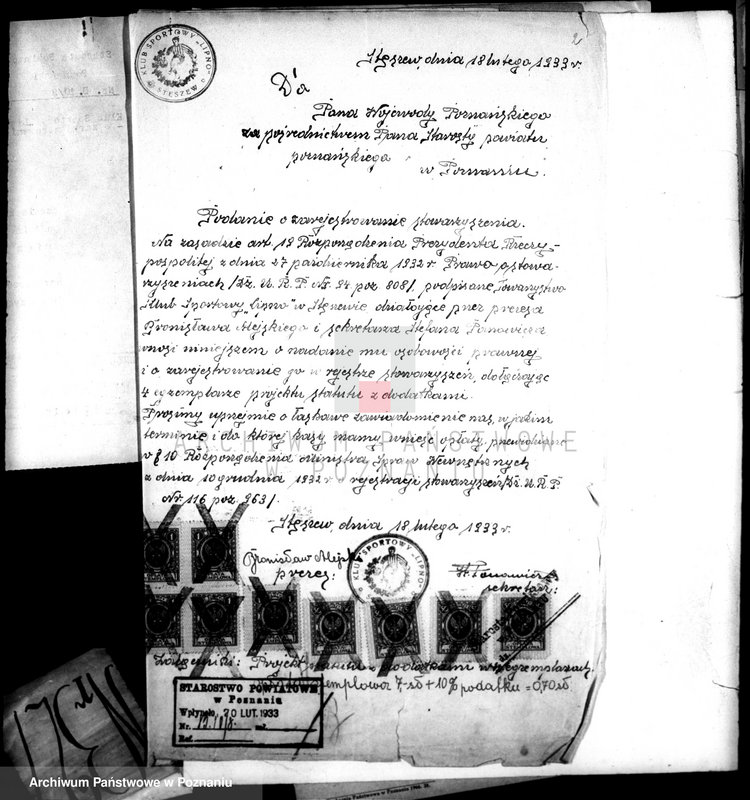 KLUB SPORTOWY „LIPNO" STĘSZEW
2
Stęszew, dnia 18 lutego 1933 r.
Do
Pana Wojewody Poznańskiego
za pośrednictwem Pana Starosty powiatu
poznańskiego
w Poznaniu.
Podanie o zarejestrowanie stowarzyszenia.
Na zasadzie art. 19 Rozporządzenia Prezydenta Rzeczy-
pospolitej z dnia 27 października 1932 r. Prawo o stowa-
rzyszeniach /Dz. U. R. P. Nr. 94 poz. 808/ podpisane Towarzystwo
Klub Sportowy „Lipno" w Stęszewie działające przez prezesa
Bronisława Alejskiego i sekretarza Stefana Panowicza
wnosi niniejszem o nadanie mu osobowości prawnej
i o zarejestrowanie go w rejestrze stowarzyszeń, dołączając
4 egzemplarze projektu statutu z dodatkami.
Prosimy uprzejmie o łaskawe zawiadomienie nas, w jakim
terminie i do której kasy mamy wnieść opłaty przewidziane
w § 10 Rozporządzenia Ministra Spraw Wewnętrznych
z dnia 10 grudnia 1932 r. o rejestracji stowarzyszeń /Dz. U. R. P.
Nr. 116 poz. 963/.
Stęszew, dnia 18 lutego 1933 r.
Bronisław Alejski
prezes:
KLUB SPORTOWY „LIPNO" STĘSZEW
St. Panowicz
sekretarz:
Załączniki: Projekt statutu z dodatkami w 4 egzemplarzach.
7,- zł + 10% podatku = 0,70 zł.
STAROSTWO POWIATOWE
w Poznaniu
Wpłynęło 20 LUT. 1933
Nr. zał.
Ref.
ARCHIWUM PAŃSTWOWE
W POZNANIU
Archiwum Państwowe w Poznaniu